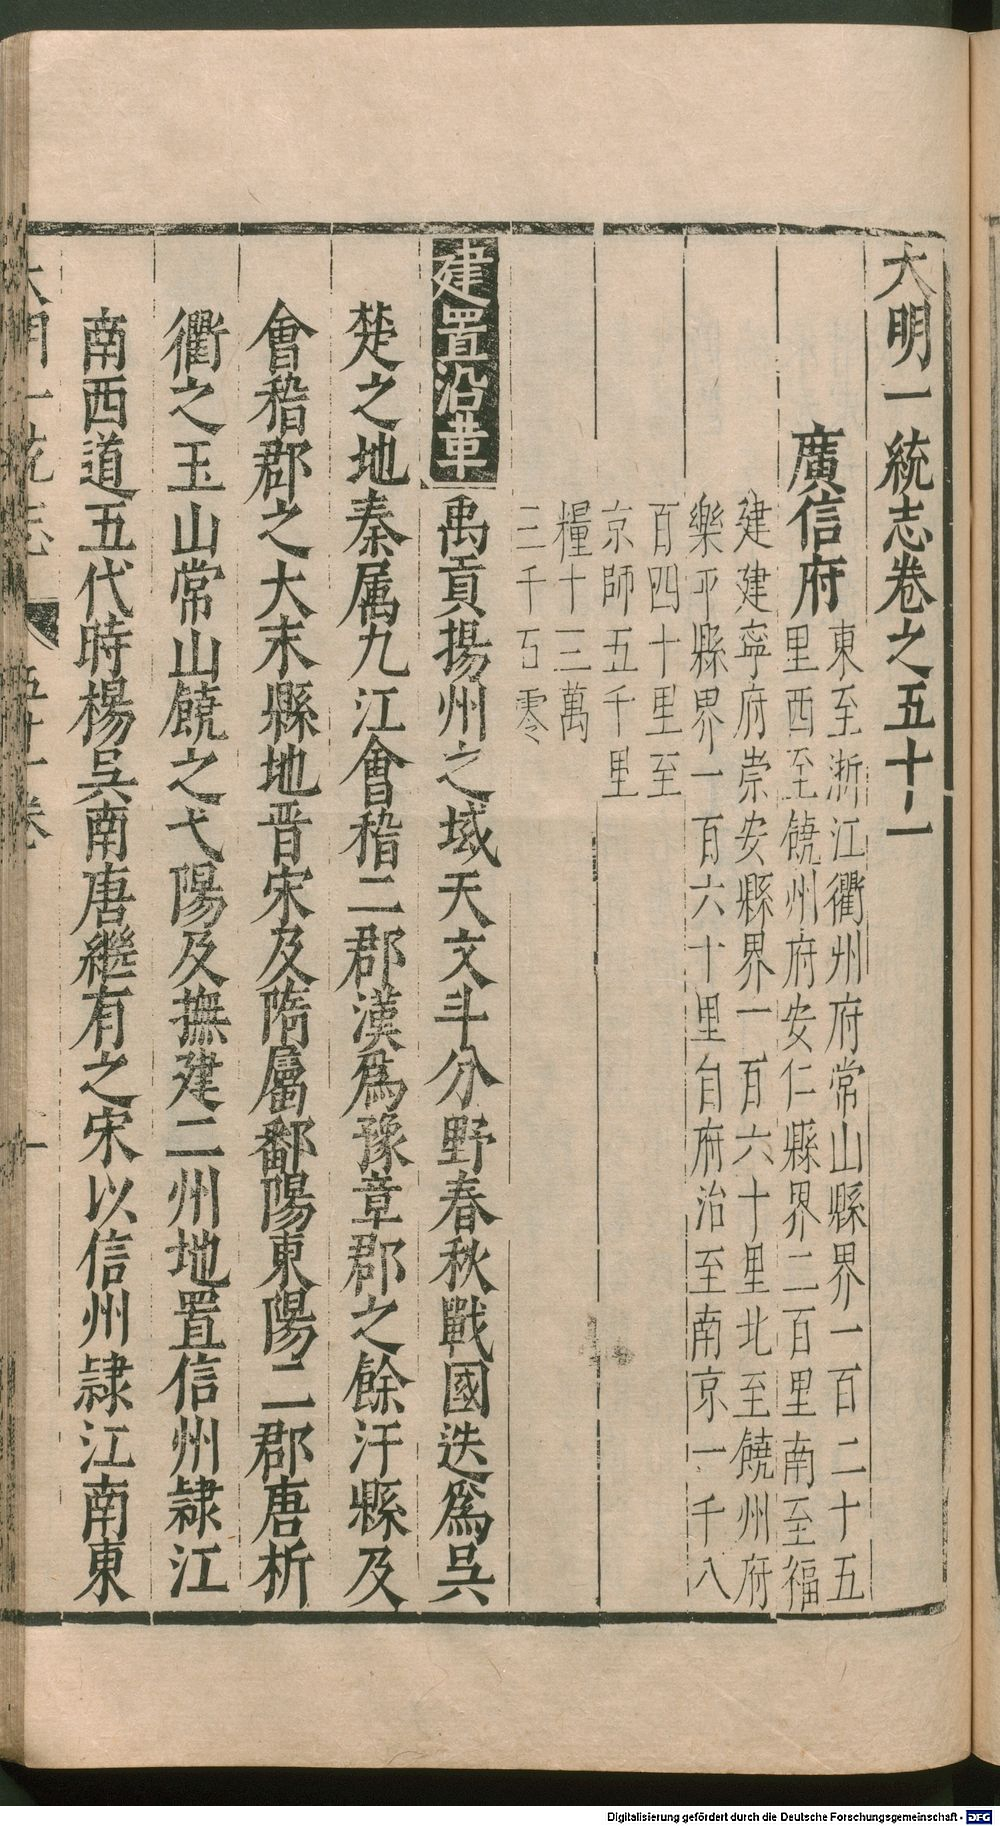 大明一統志卷之五十一
廣信府
東至浙江衢州府常山縣界一百二十五
里西至饒州府安仁縣界二百里南至福
建建寧府崇安縣界一百六十里北至饒州府
樂平縣界一百六十里自府治至南京一千八
百四十里至
京師五千里
糧十三萬
三千丂零
建置沿革 禹貢揚州之域天文斗分野春秋戰國迭爲吳
楚之地秦属九江會稽二郡漢爲豫章郡之餘汗縣及
會稽郡之大末縣地晋宋及隋屬鄱陽東陽二郡唐析
衢之玉山常山饒之弋陽及撫建二州地置信州隷江
南西道五代時楊吳南唐繼有之宋以信州隷江南東
大明一統志 五十一卷 一
Digitalisierung gefördert durch die Deutsche Forschungsgemeinschaft - DFG